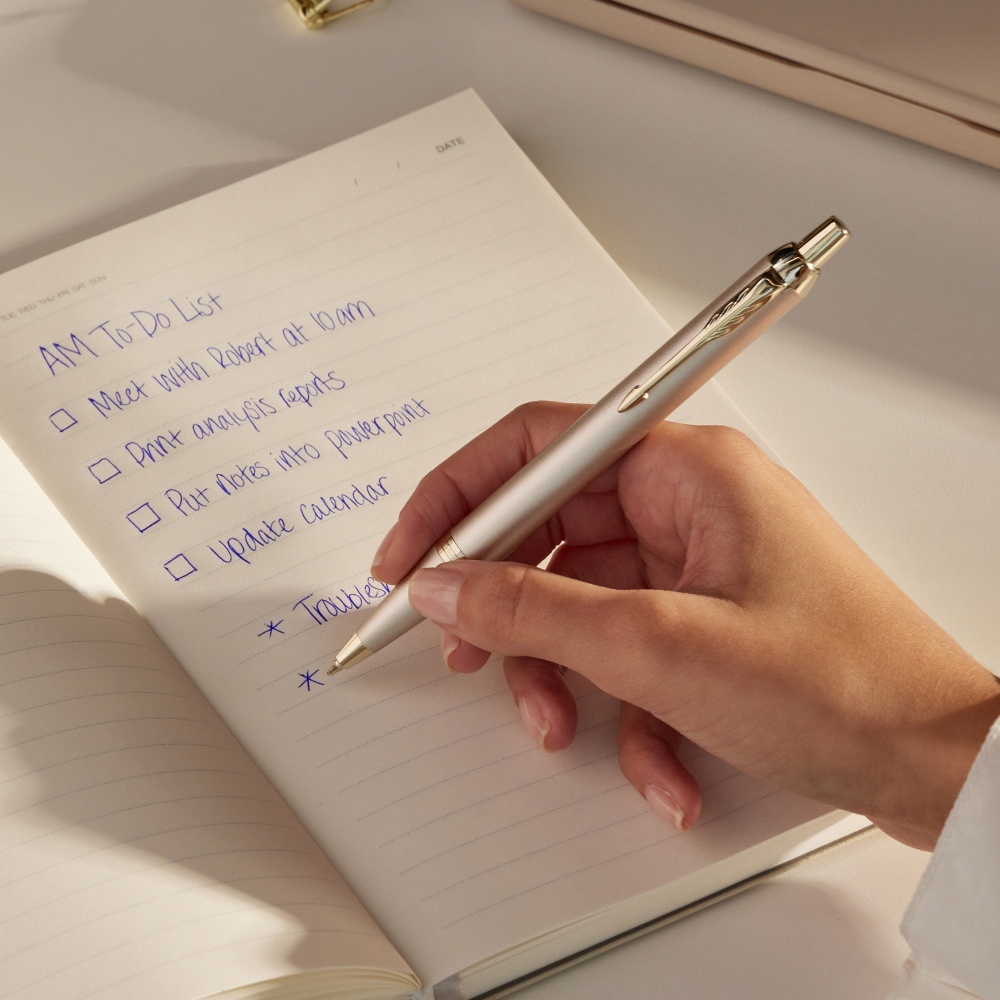 DATE
TUE WED THU FRI SAT SUN
AM To-Do List
Meet with Robert at 10am
Print analysis reports
Put notes into powerpoint
Update calendar
* Troubles
*